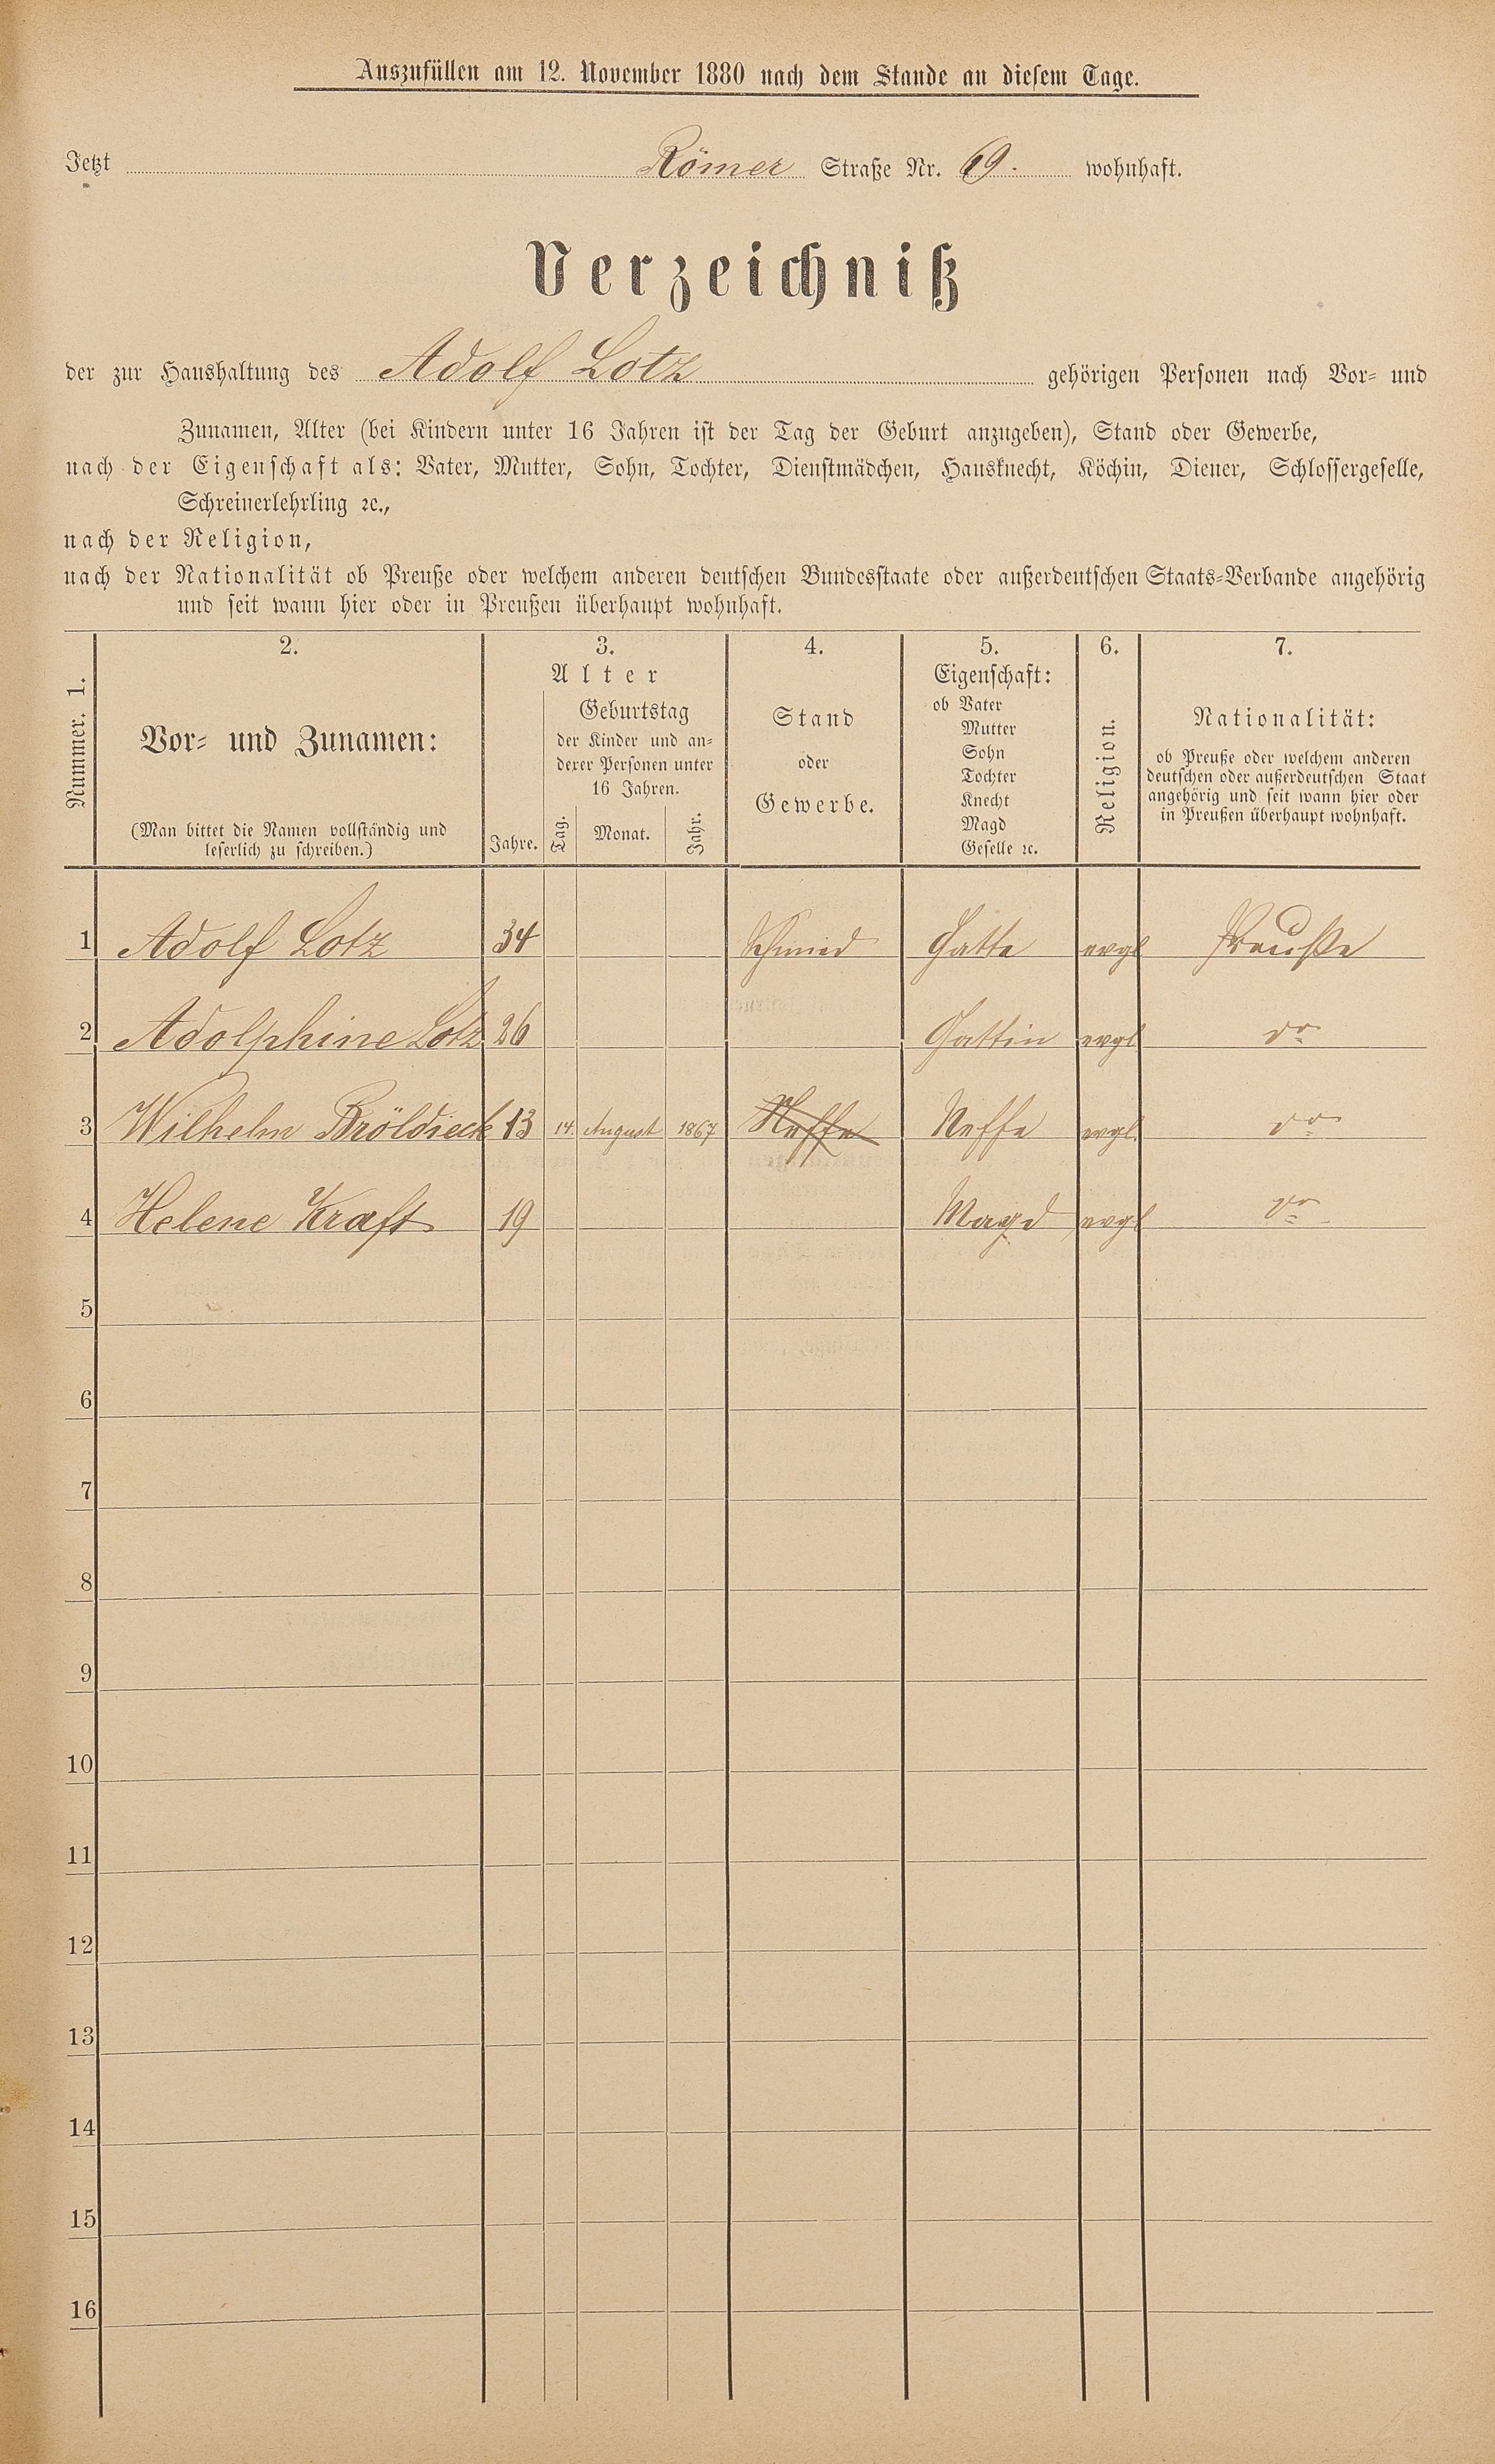 Auszufüllen am 12. November 1880 nach dem Stande an diesem Tage.
Jetzt Römer Straße Nr. 69. wohnhaft.
Verzeichniß
der zur Haushaltung des Adolf Lotz gehörigen Personen nach Vor- und
Zunamen, Alter (bei Kindern unter 16 Jahren ist der Tag der Geburt anzugeben), Stand oder Gewerbe,
nach der Eigenschaft als: Vater, Mutter, Sohn, Tochter, Dienstmädchen, Hausknecht, Köchin, Diener, Schlossergeselle,
Schreinerlehrling ꝛc.,
nach der Religion,
nach der Nationalität ob Preuße oder welchem anderen deutschen Bundesstaate oder außerdeutschen Staats-Verbande angehörig
und seit wann hier oder in Preußen überhaupt wohnhaft.
Nummer. 1.
2.
Vor- und Zunamen:
(Man bittet die Namen vollständig und
leserlich zu schreiben.)
3.
Alter
Jahre.
Geburtstag
der Kinder und an-
derer Personen unter
16 Jahren.
Tag. Monat. Jahr.
4.
Stand
oder
Gewerbe.
5.
Eigenschaft:
ob Vater
Mutter
Sohn
Tochter
Knecht
Magd
Geselle ꝛc.
6.
Religion.
7.
Nationalität:
ob Preuße oder welchem anderen
deutschen oder außerdeutschen Staat
angehörig und seit wann hier oder
in Preußen überhaupt wohnhaft.
1 Adolf Lotz 34 Schmied Gatte evgl Preuße
2 Adolphine Lotz 26 Gattin evgl do
3 Wilhelm Bröldieck 13 14. August 1867 Neffe Neffe evgl. do
4 Helene Kraft 19 Magd evgl do
5
6
7
8
9
10
11
12
13
14
15
16